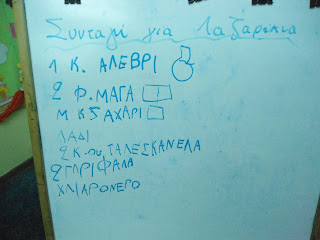 Συνταγή για Λαζαράκια
1 Κ. ΑΛΕΒΡΙ
2 Φ. ΜΑΓΑ
Μ Κ ΖΑΧΑΡΙ
ΛΑΔΙ
2 Κ. ΚΑΝΕΛΑ
2 ΓΑΡΙΦΑΛΑ
ΧΛΙΑΡΟ ΝΕΡΟ